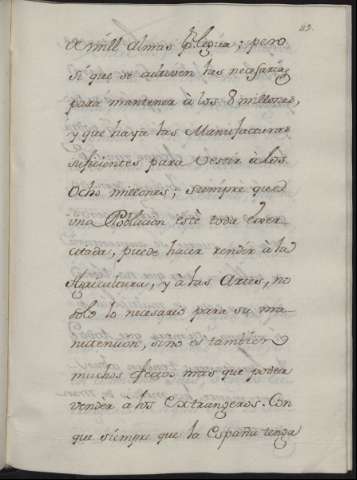 83.
á mill Almas p.r Legua; pero
si que se cultiven las necesarias
para mantener à los 8 millones,
y que haya las Manufacturas
suficientes para vestir à los
Ocho millones; siempre que
una Poblacion esté toda exer
citada, puede hacer render à la
Agricultura, y à las Artes, no
solo lo necesario para su ma
nutencion, sino es tambien
muchos efectos mas que poder
vender à los Extrangeros. Con
que siempre que la España tenga